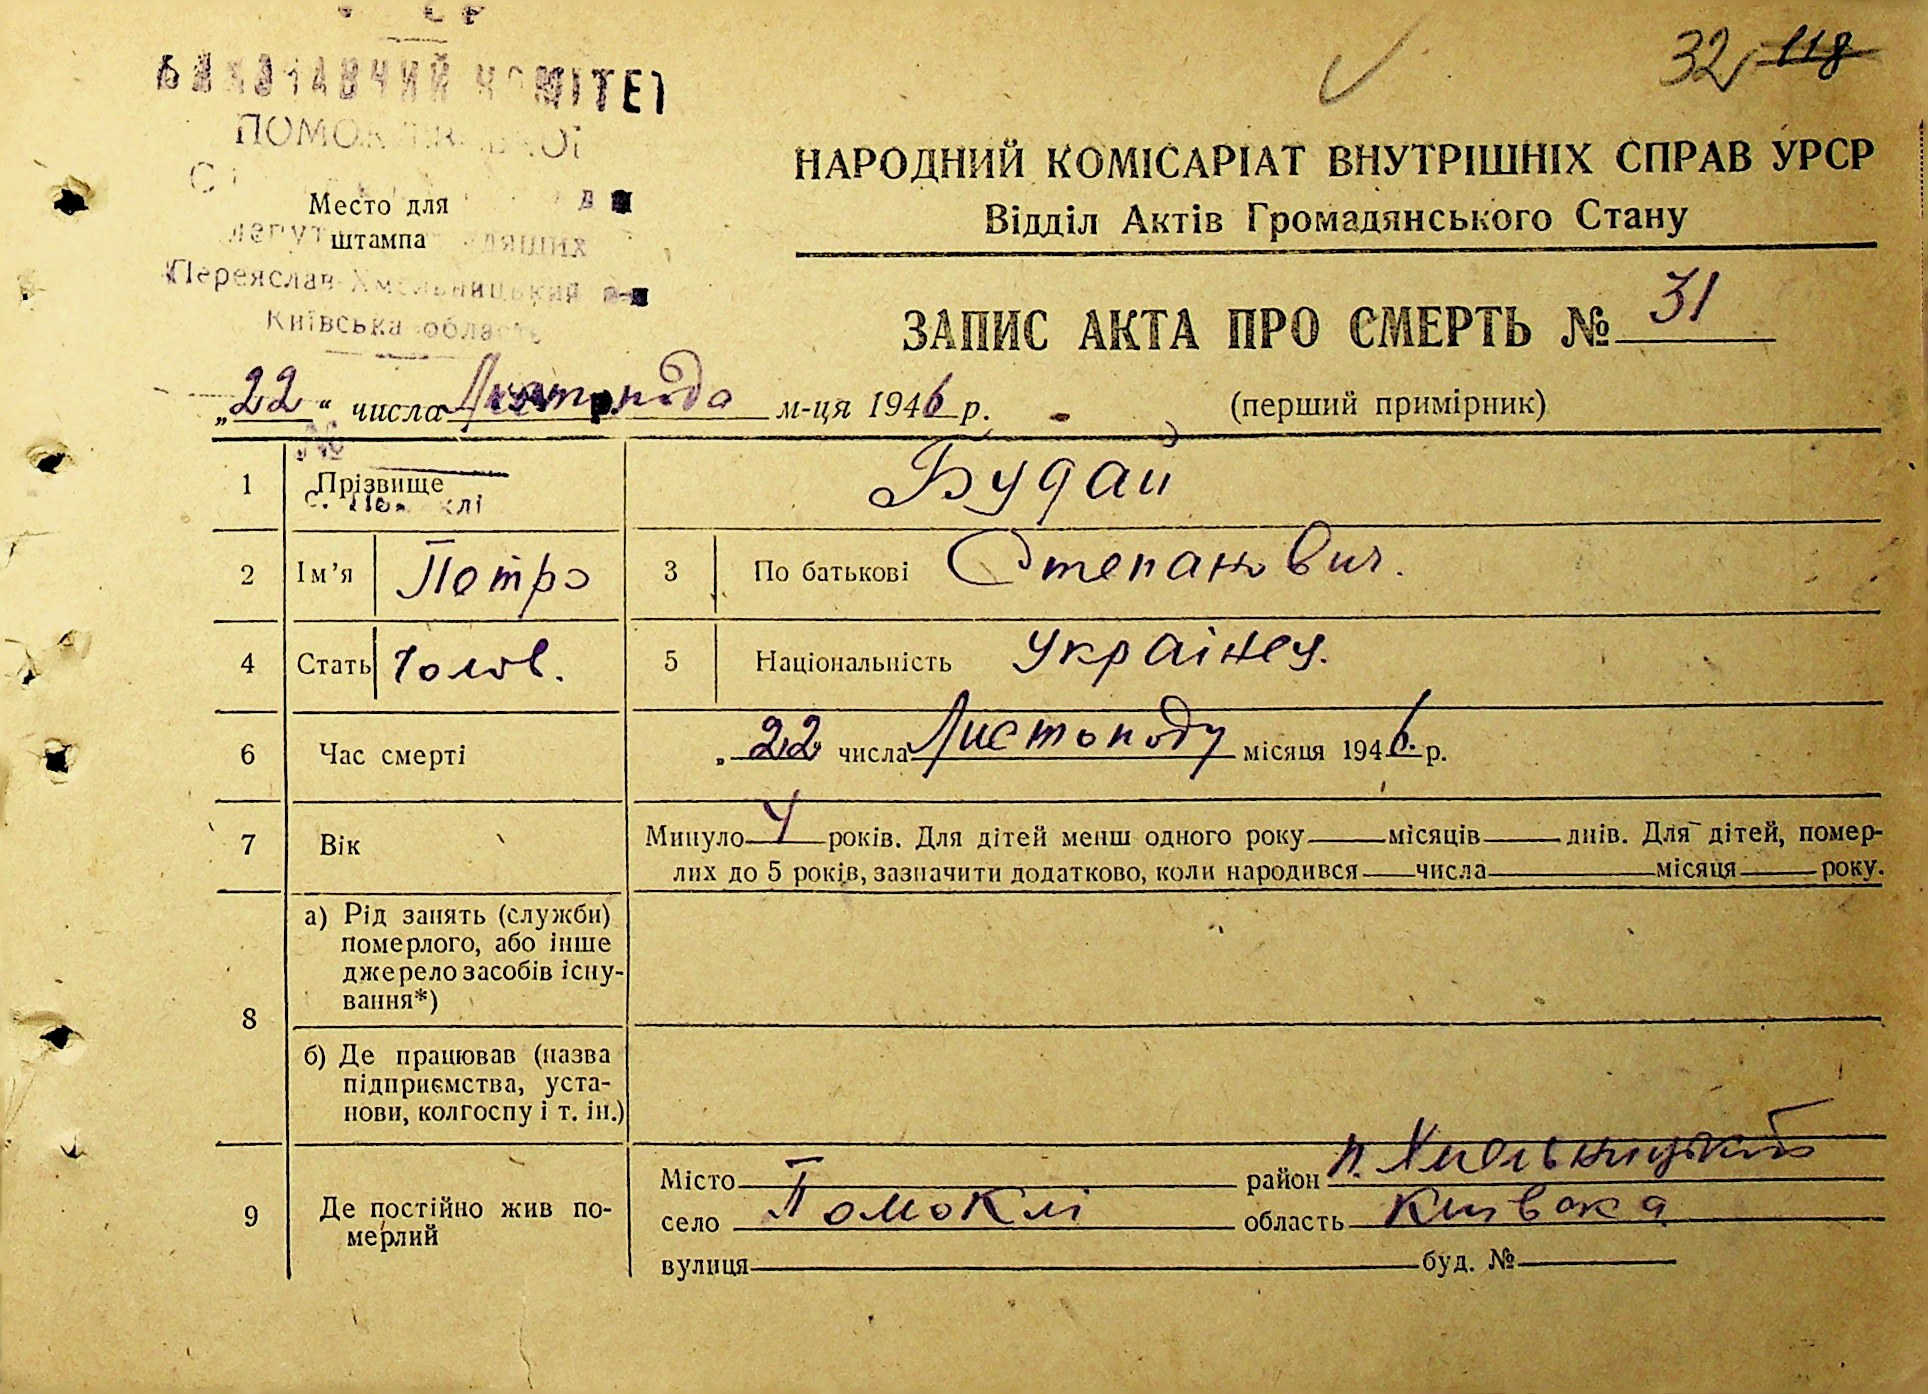 32 118
КОМІТЕТ
Место для
штампа
Переяслав-Хмельницький
Київська область
НАРОДНИЙ КОМІСАРІАТ ВНУТРІШНІХ СПРАВ УРСР
Відділ Актів Громадянського Стану
ЗАПИС АКТА ПРО СМЕРТЬ № 31
„22“ числа Листопода м-ця 1946 р. (перший примірник)
1 Прізвище Будай
2 Ім’я Петро 3 По батькові Степанович.
4 Стать Чолов. 5 Національність Українец.
6 Час смерті „22 числа Листоподу місяця 1946. р.
7 Вік Минуло 4 років. Для дітей менш одного року місяців днів. Для дітей, помер-
лих до 5 років, зазначити додатково, коли народився числа місяця року.
8 а) Рід занять (служби)
померлого, або інше
джерело засобів існу-
вання*)
б) Де працював (назва
підприємства, уста-
нови, колгоспу і т. ін.)
9 Де постійно жив по-
мерлий
Місто район П. Хмельницький
село Помоклі область Київска
вулиця буд. №